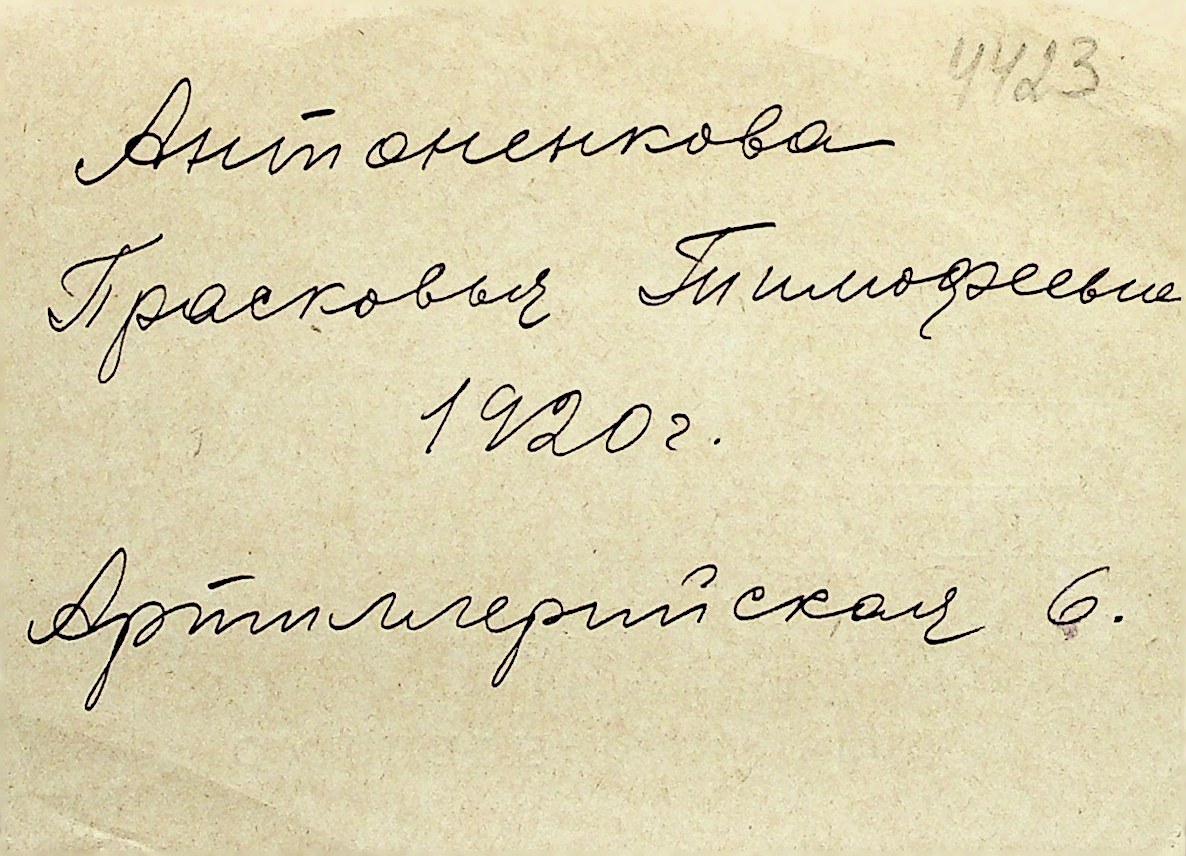 4423
Антоненкова
Прасковья Тимофеевна
1920г.
Артиллерийская 6.